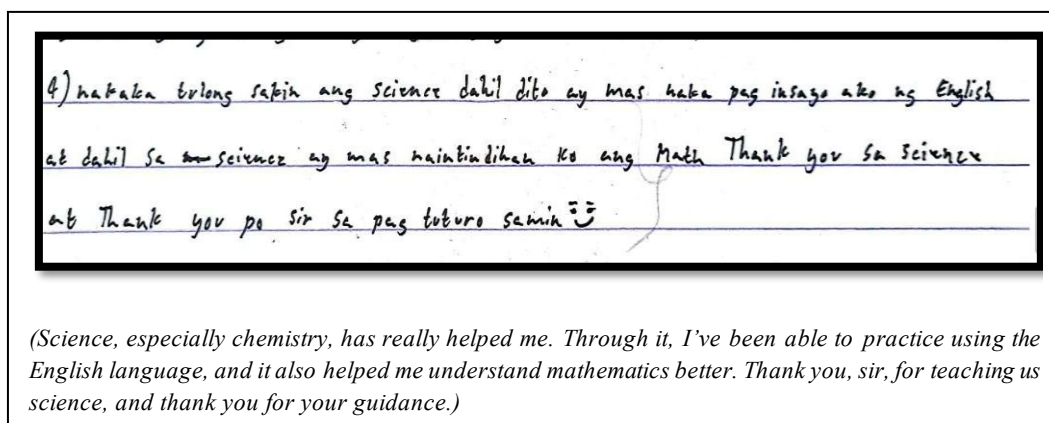 4) nakaka tulong sakin ang science dahil dito ay mas naka pag insayo ako ng English
at dahil sa science ay mas naintindihan ko ang Math Thank you sa science
at Thank you po sir sa pag tuturo samin
(Science, especially chemistry, has really helped me. Through it, I've been able to practice using the
English language, and it also helped me understand mathematics better. Thank you, sir, for teaching us
science, and thank you for your guidance.)